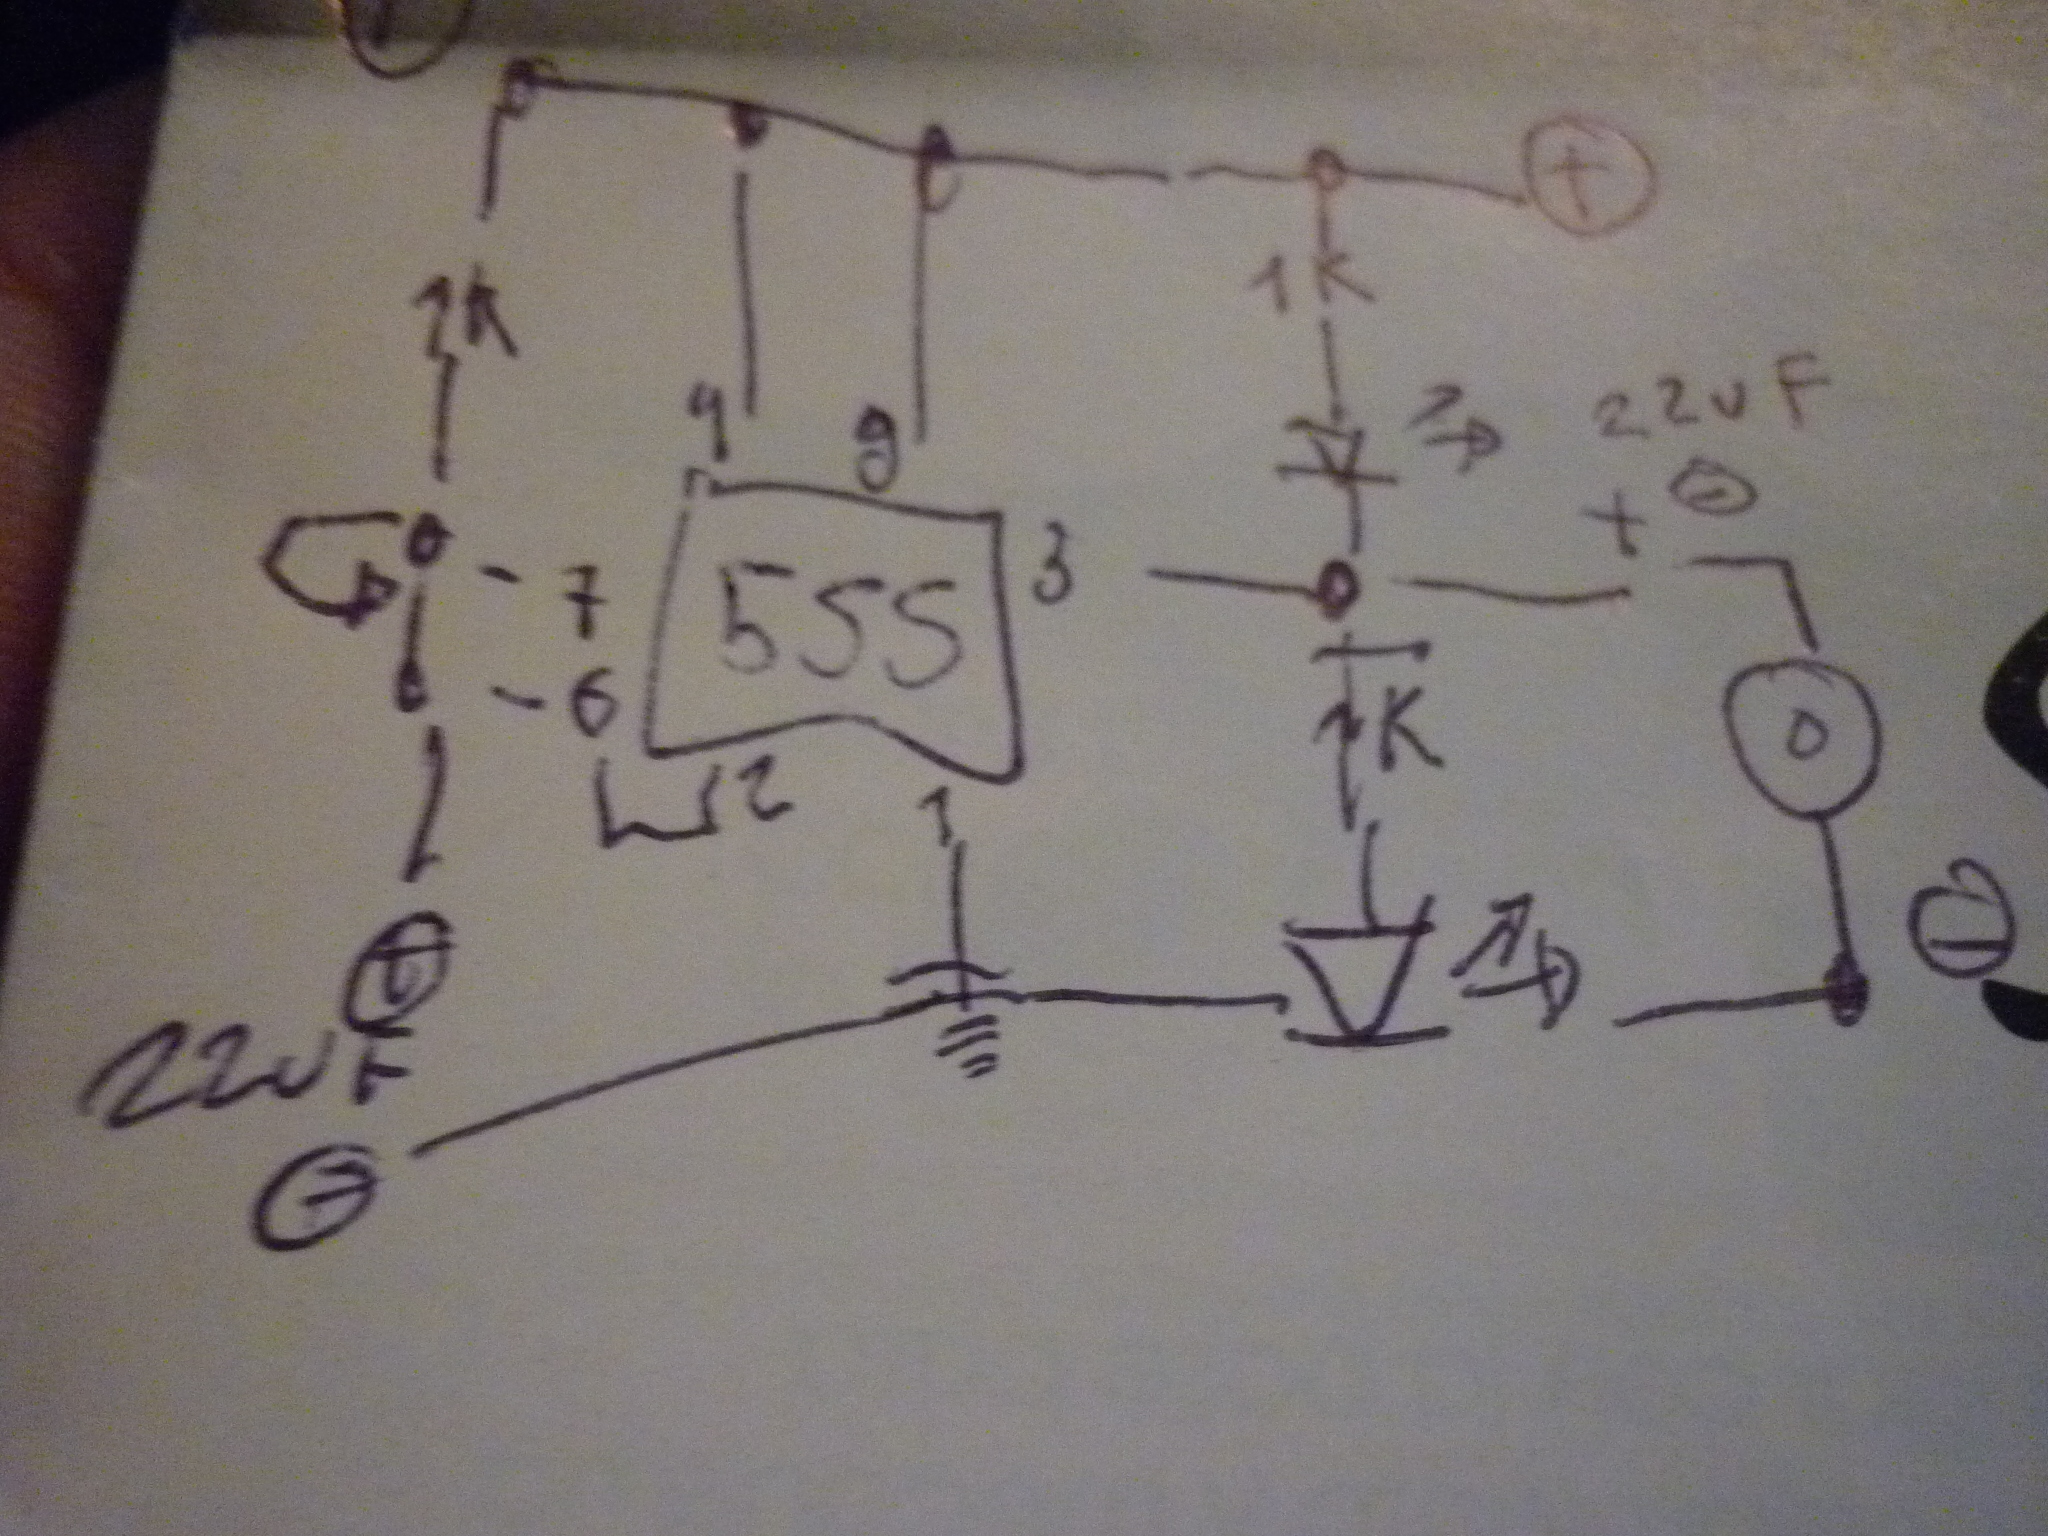 +
1K
1K
4
8
22uF
+ -
7
555
3
6
1K
2
1
+
-
22uF
-